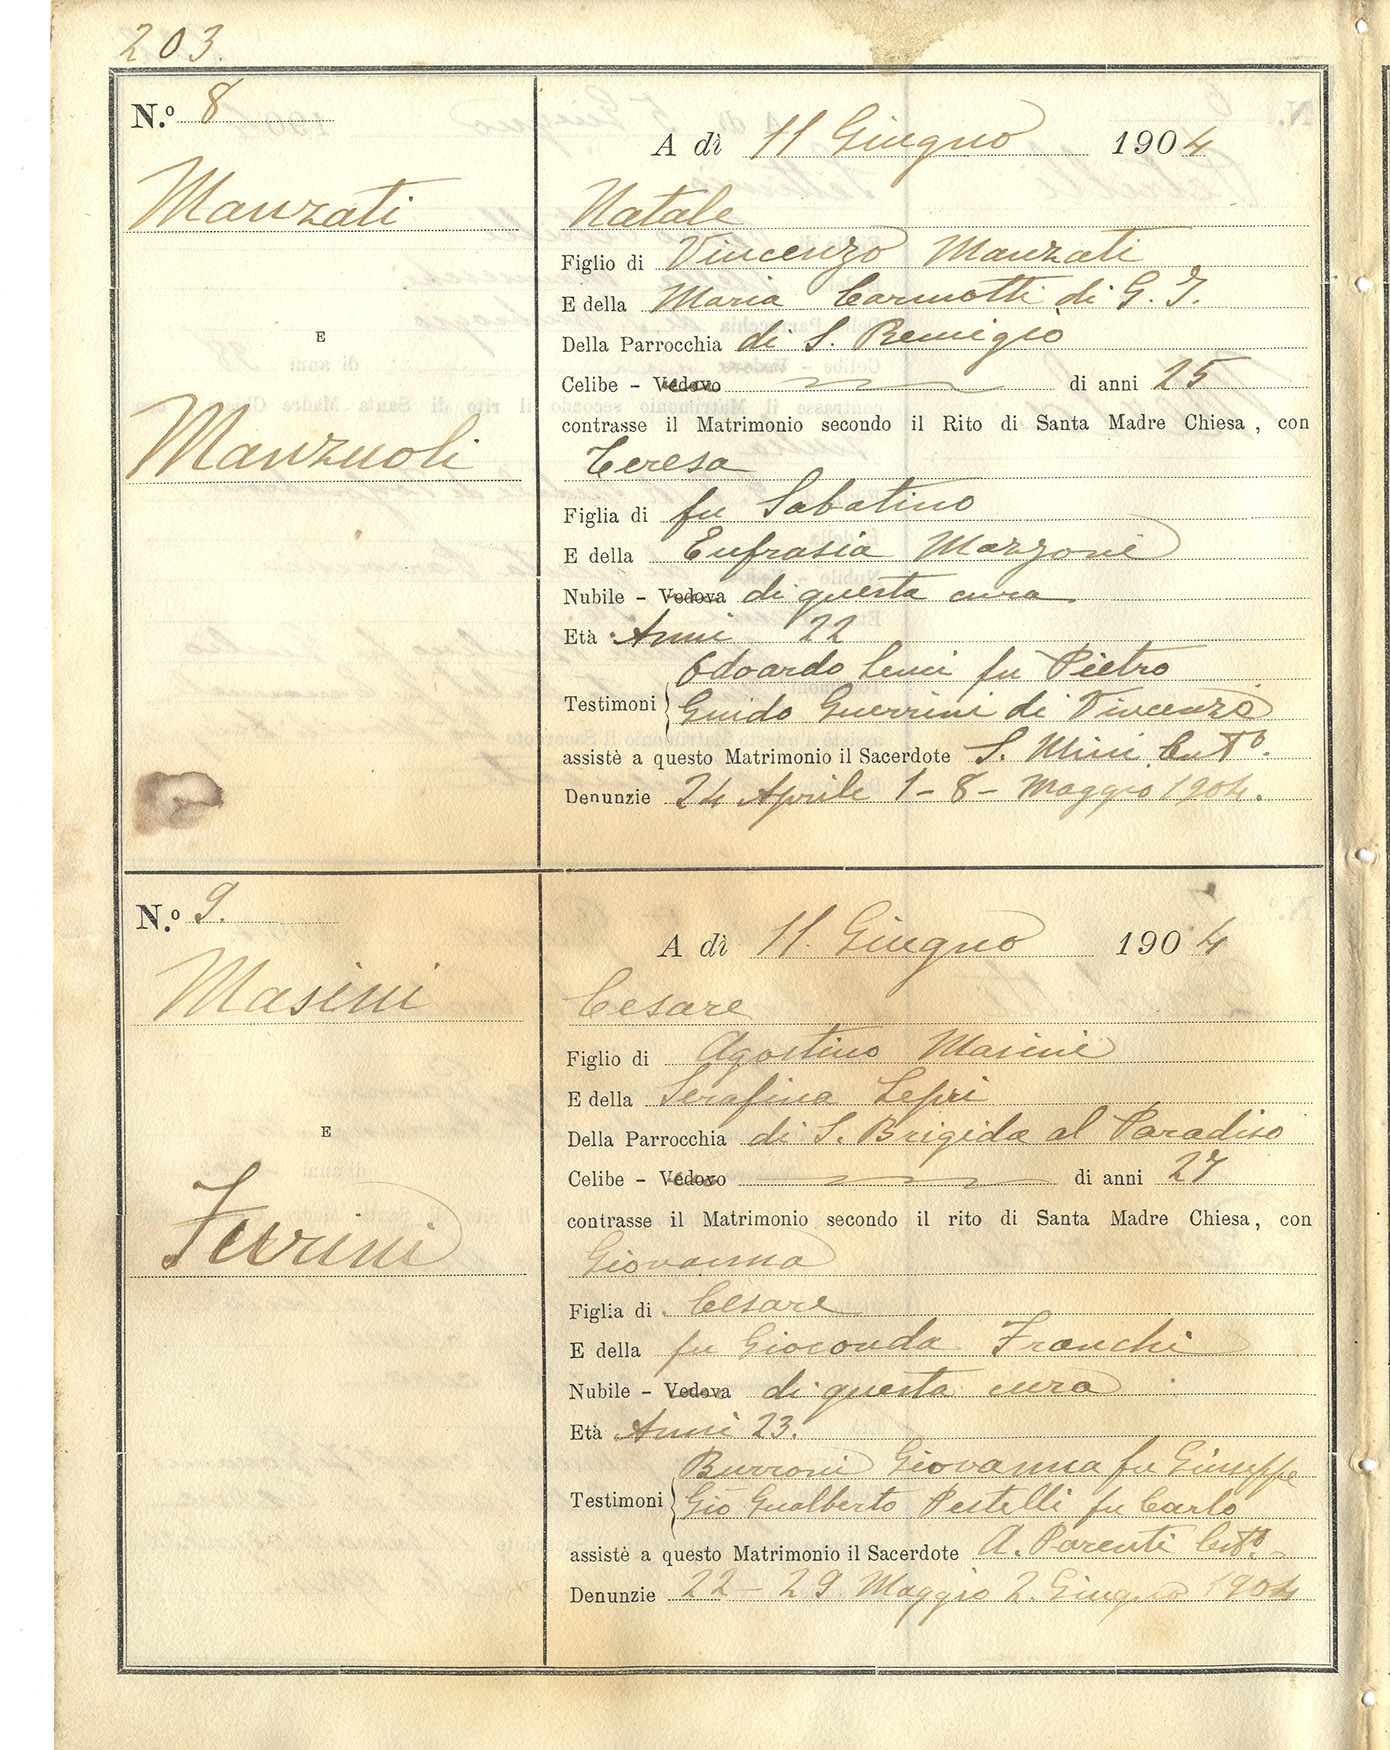 203.
N.º 8
A dì 11 Giugno 1904
Manzati
Natale
Figlio di Vincenzo Manzati
E della Maria di G. I.
E
Della Parrocchia di S. Remigio
Celibe - Vedovo di anni 25
contrasse il Matrimonio secondo il Rito di Santa Madre Chiesa, con
Manzuoli
Teresa
Figlia di fu Sabatino
E della Eufrasia Mazzoni
Nubile - Vedova di questa cura
Età Anni 22
Edoardo fu Pietro
Testimoni Guido Guerrini di Vincenzo
assistè a questo Matrimonio il Sacerdote S. Mini
Denunzie 24 Aprile 1-8- Maggio 1904.
N.º 9.
A dì 11. Giugno 1904
Masini
Cesare
Figlio di Agostino Masini
E della Serafina Lepri
E
Della Parrocchia di S. Brigida al Paradiso
Celibe - Vedovo di anni 27
contrasse il Matrimonio secondo il rito di Santa Madre Chiesa, con
Furini
Giovanna
Figlia di Cesare
E della fu Gioconda Franchi
Nubile - Vedova di questa cura
Età Anni 23.
Burroni Giovanna fu Giuseppe
Testimoni Gio Gualberto Pestelli fu Carlo
assistè a questo Matrimonio il Sacerdote A. Parenti
Denunzie 22-29 Maggio 2. Giugno 1904